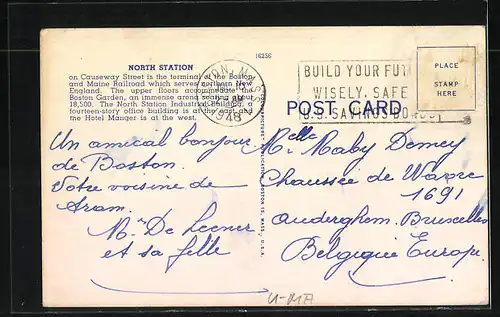 16256
NORTH STATION
on Causeway Street is the terminal of the Boston
and Maine Railroad which serves northern New
England. The upper floors accommodate the
Boston Garden, an immense arena seating about
18,500. The North Station Industrial Building, a
fourteen-story office building is at the east and
the Hotel Manger is at the west.
BOSTON, MASS.
1948
BUILD YOUR FUTURE
WISELY, SAFELY
U.S. SAVINGS BONDS
PLACE
STAMP
HERE
POST CARD
Un amical bonjour
de Boston.
Votre voisine de
Mme De Leener
et sa fille
Melle Maby Demey
Chaussée de Wavre
1691
Auderghem. Bruxelles
Belgique Europe.
U-MA